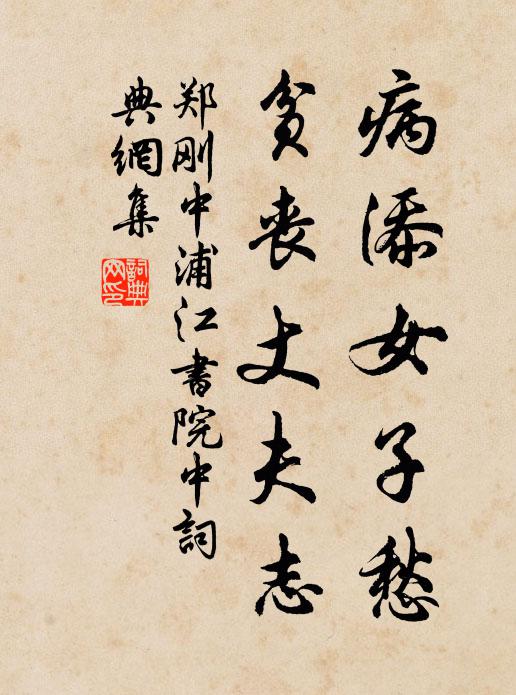 病添女子愁
贫丧丈夫志
郑刚中浦江书院中词
典网集
词典网印